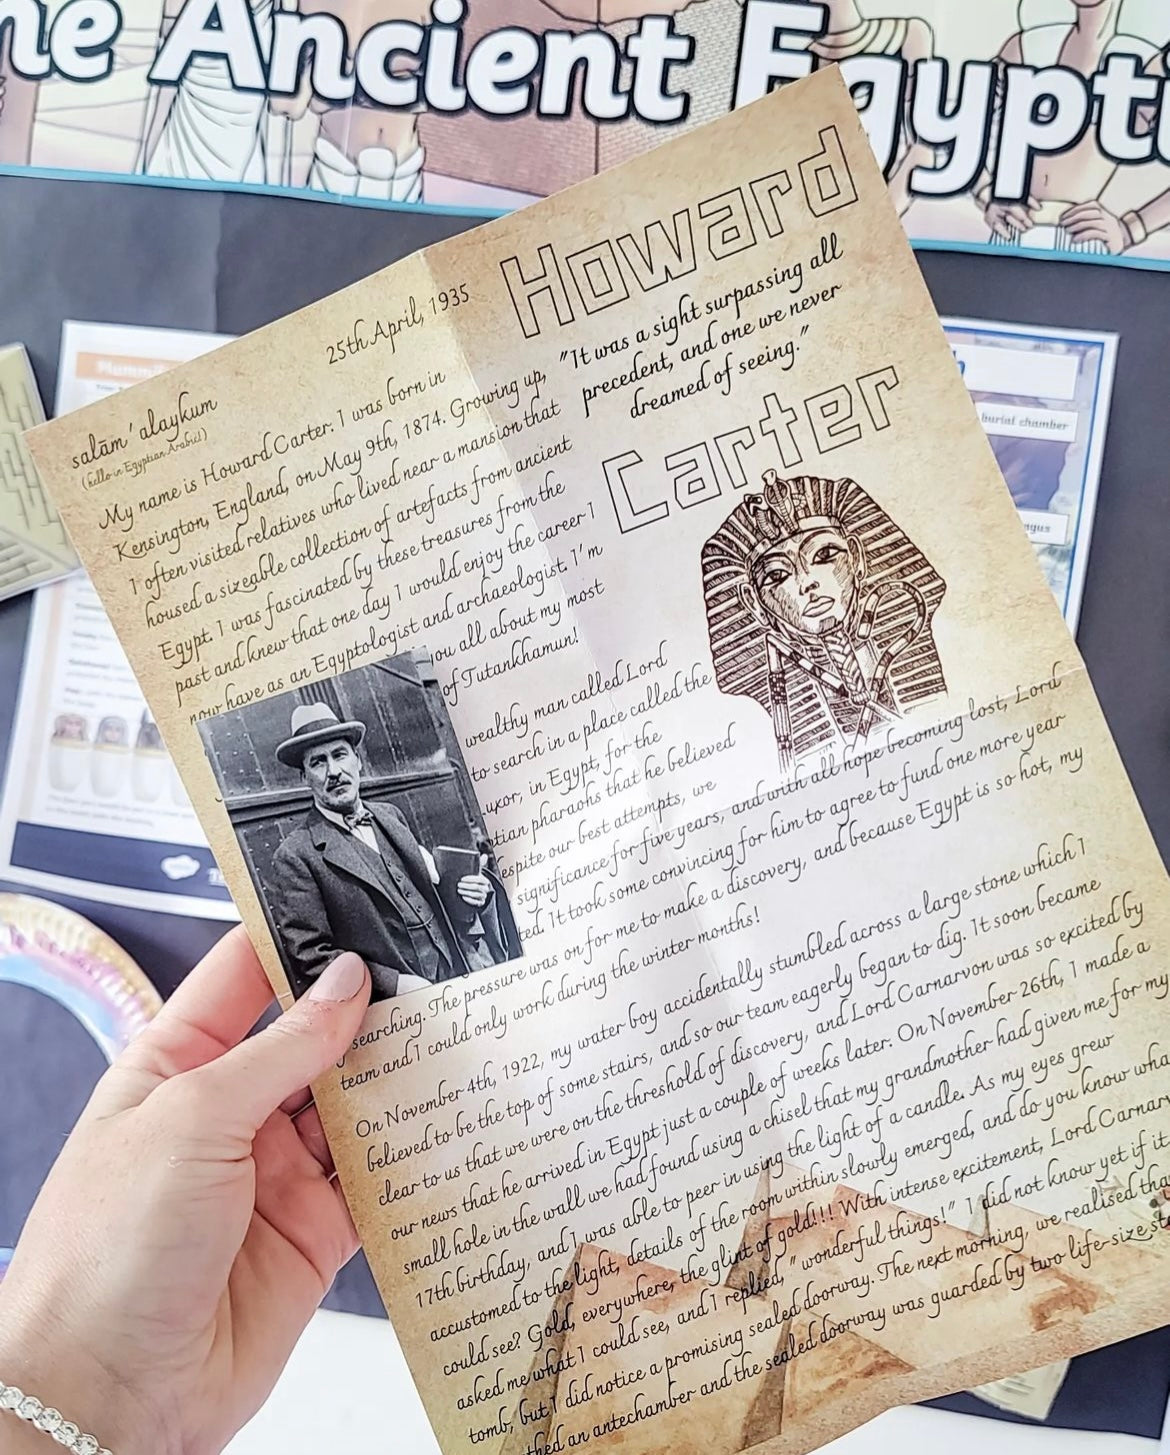 The Ancient Egypti
Howard
"It was a sight surpassing all
precedent, and one we never
dreamed of seeing."
Carter
25th April, 1935
salām 'alaykum
(hello in Egyptian Arabic)
My name is Howard Carter. I was born in
Kensington, England, on May 9th, 1874. Growing up,
I often visited relatives who lived near a mansion that
housed a sizeable collection of artefacts from ancient
Egypt. I was fascinated by these treasures from the
past and knew that one day I would enjoy the career I
now have as an Egyptologist and archaeologist. I'm
you all about my most
of Tutankhamun!
wealthy man called Lord
to search in a place called the
uxor, in Egypt, for the
tian pharaohs that he believed
espite our best attempts, we
significance for five years, and with all hope becoming lost, Lord
ted. It took some convincing for him to agree to fund one more year
searching. The pressure was on for me to make a discovery, and because Egypt is so hot, my
team and I could only work during the winter months!
On November 4th, 1922, my water boy accidentally stumbled across a large stone which I
believed to be the top of some stairs, and so our team eagerly began to dig. It soon became
clear to us that we were on the threshold of discovery, and Lord Carnarvon was so excited by
our news that he arrived in Egypt just a couple of weeks later. On November 26th, I made a
small hole in the wall we had found using a chisel that my grandmother had given me for my
17th birthday, and I was able to peer in using the light of a candle. As my eyes grew
accustomed to the light, details of the room within slowly emerged, and do you know wha
could see? Gold, everywhere, the glint of gold!!! With intense excitement, Lord Carnarv
asked me what I could see, and I replied, "wonderful things!" I did not know yet if it
tomb, but I did notice a promising sealed doorway. The next morning, we realised tha
thed an antechamber and the sealed doorway was guarded by two life-size st
Mummifi
burial chamber
agus